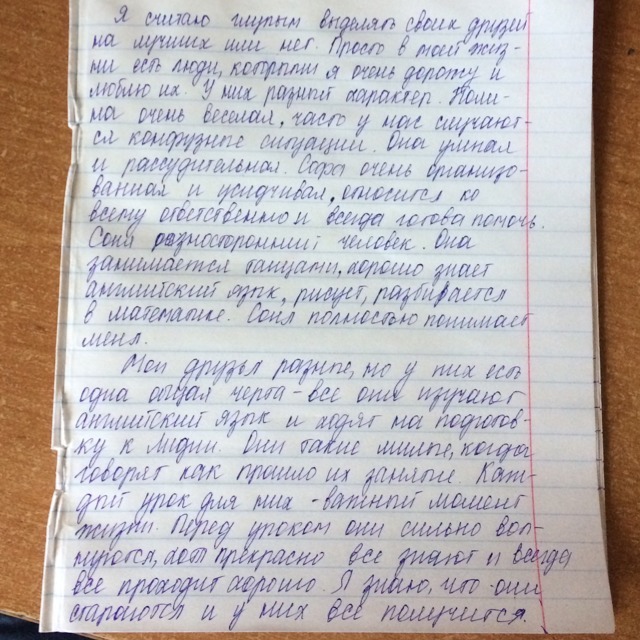 Я считаю глупым выделять своих друзей
на лучших или нет. Просто в моей жиз-
ни есть люди, которыми я очень дорожу и
люблю их. У них разный характер. Поли-
на очень веселая, часто у нас случают-
ся конфузные ситуации. Она умная
и рассудительная. Софа очень организо-
ванная и усидчивая, относится ко
всему ответственно и всегда готова помочь.
Соня разносторонний человек. Она
занимается танцами, хорошо знает
английский язык, рисует, разбирается
в математике. Соня полностью понимает
меня.
Мои друзья разные, но у них есть
одна общая черта - все они изучают
английский язык и ходят на подготов-
ку к Лидии. Они такие милые, когда
говорят как прошло их занятие. Каж-
дый урок для них - важный момент
жизни. Перед уроком они сильно вол-
нуются, хотя прекрасно все знают и всегда
все проходит хорошо. Я знаю, что они
стараются и у них все получится.